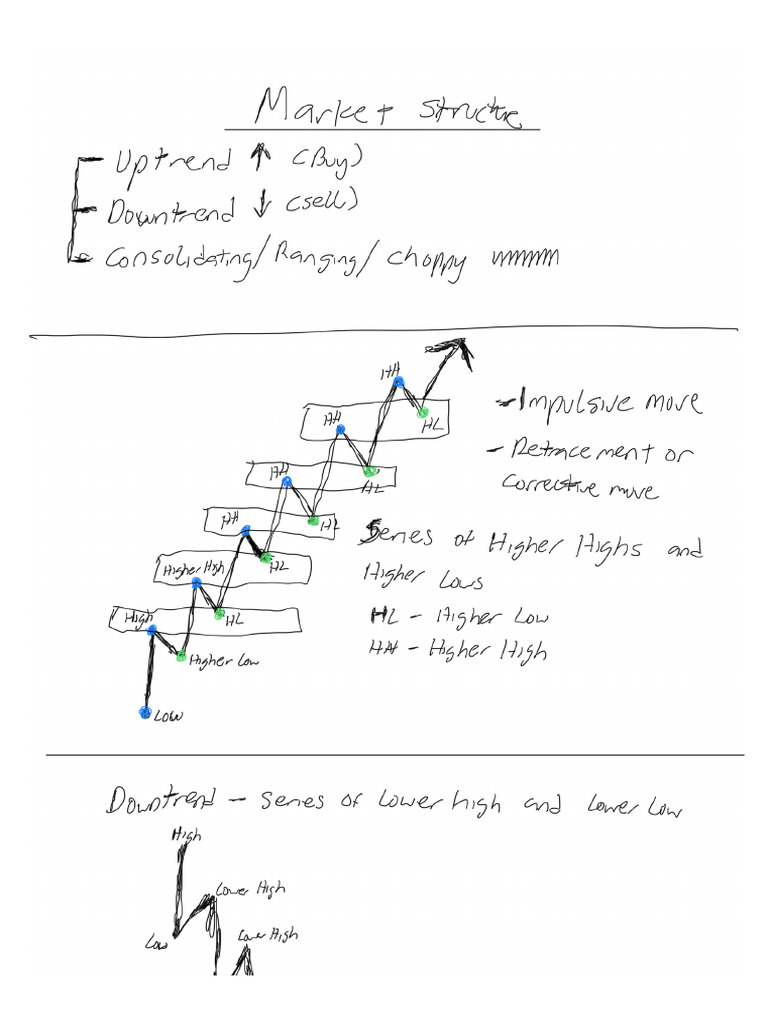 Market structure
Uptrend ↑ (Buy)
Downtrend ↓ (sell)
Consolidating/Ranging/choppy
HH
- Impulsive move
HH
HL
- Retracement or
corrective move
HH
HL
HH
HL
Series of Higher Highs and
Higher High
HL
Higher Lows
High
HL
HL - Higher Low
HH - Higher High
Higher Low
Low
Downtrend - series of lower high and lower low
High
Lower High
Low
Lower High